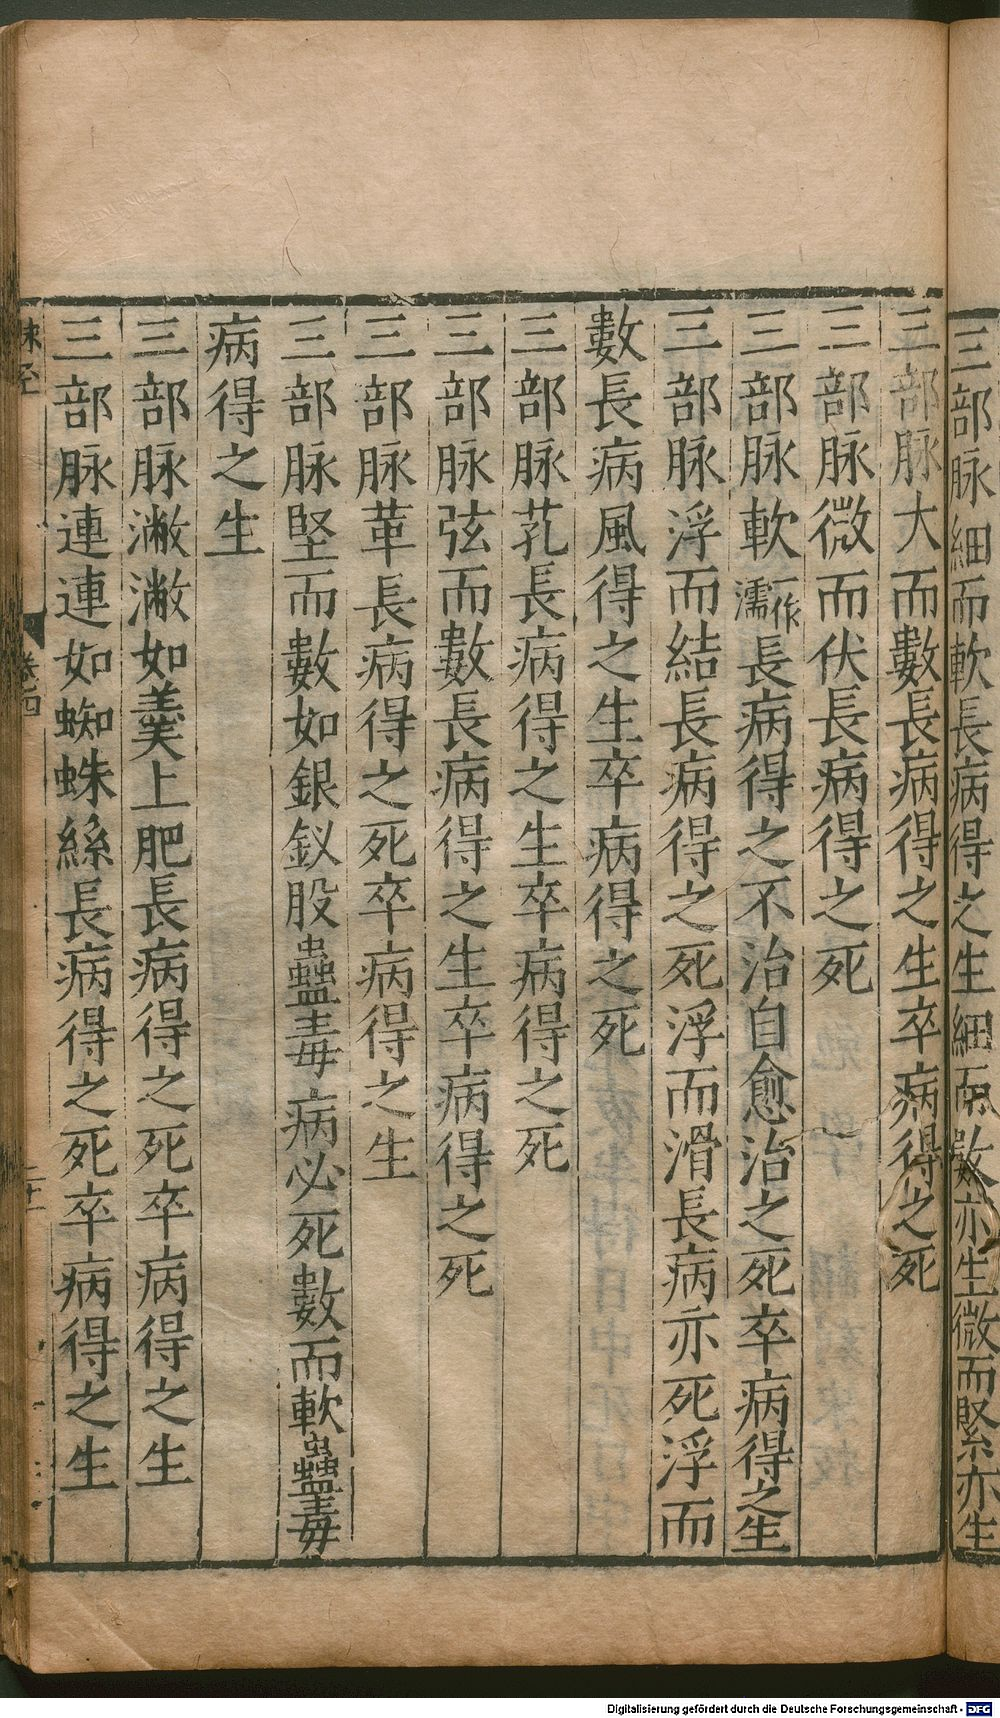 三部脉細而軟長病得之生細而數亦生微而緊亦生
三部脉大而數長病得之生卒病得之死
三部脉微而伏長病得之死
三部脉軟一作濡長病得之不治自愈治之死卒病得之生
三部脉浮而結長病得之死浮而滑長病亦死浮而
數長病風得之生卒病得之死
三部脉芤長病得之生卒病得之死
三部脉弦而數長病得之生卒病得之死
三部脉革長病得之死卒病得之生
三部脉堅而數如銀釵股蠱毒病必死數而軟蠱毒
病得之生
三部脉潎潎如羹上肥長病得之死卒病得之生
三部脉連連如蜘蛛絲長病得之死卒病得之生
脉經
卷四
Digitalisierung gefördert durch die Deutsche Forschungsgemeinschaft - DFG